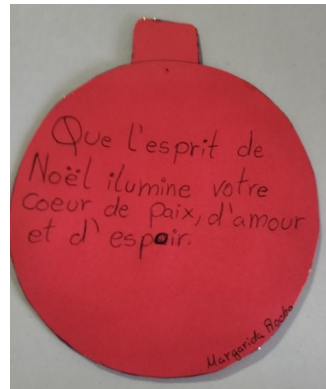 Que l'esprit de
Noël ilumine votre
coeur de paix, d'amour
et d'espoir.
Margarida Rocha